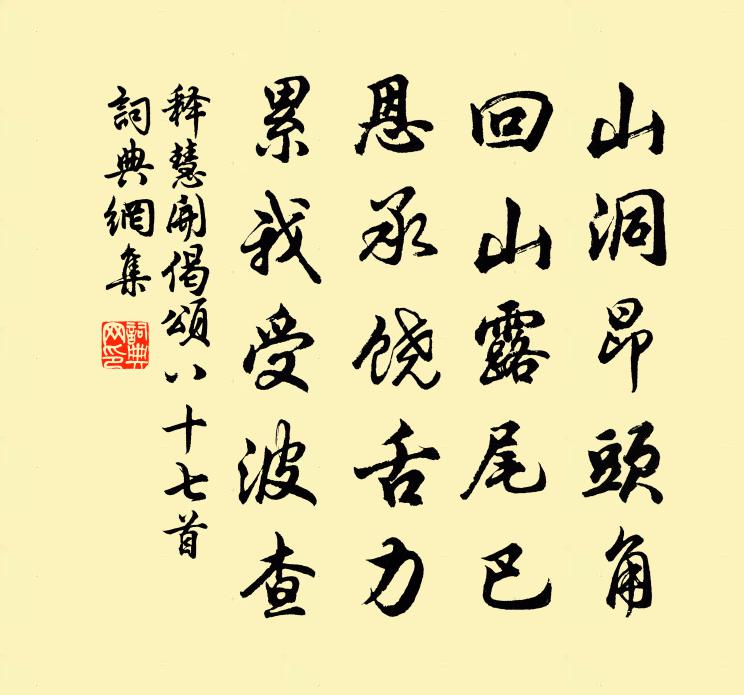 山洞昂頭角
回山露尾巴
恩承饶舌力
累我受波查
释慧開偈頌八十七首
詞典網集
詞典网印